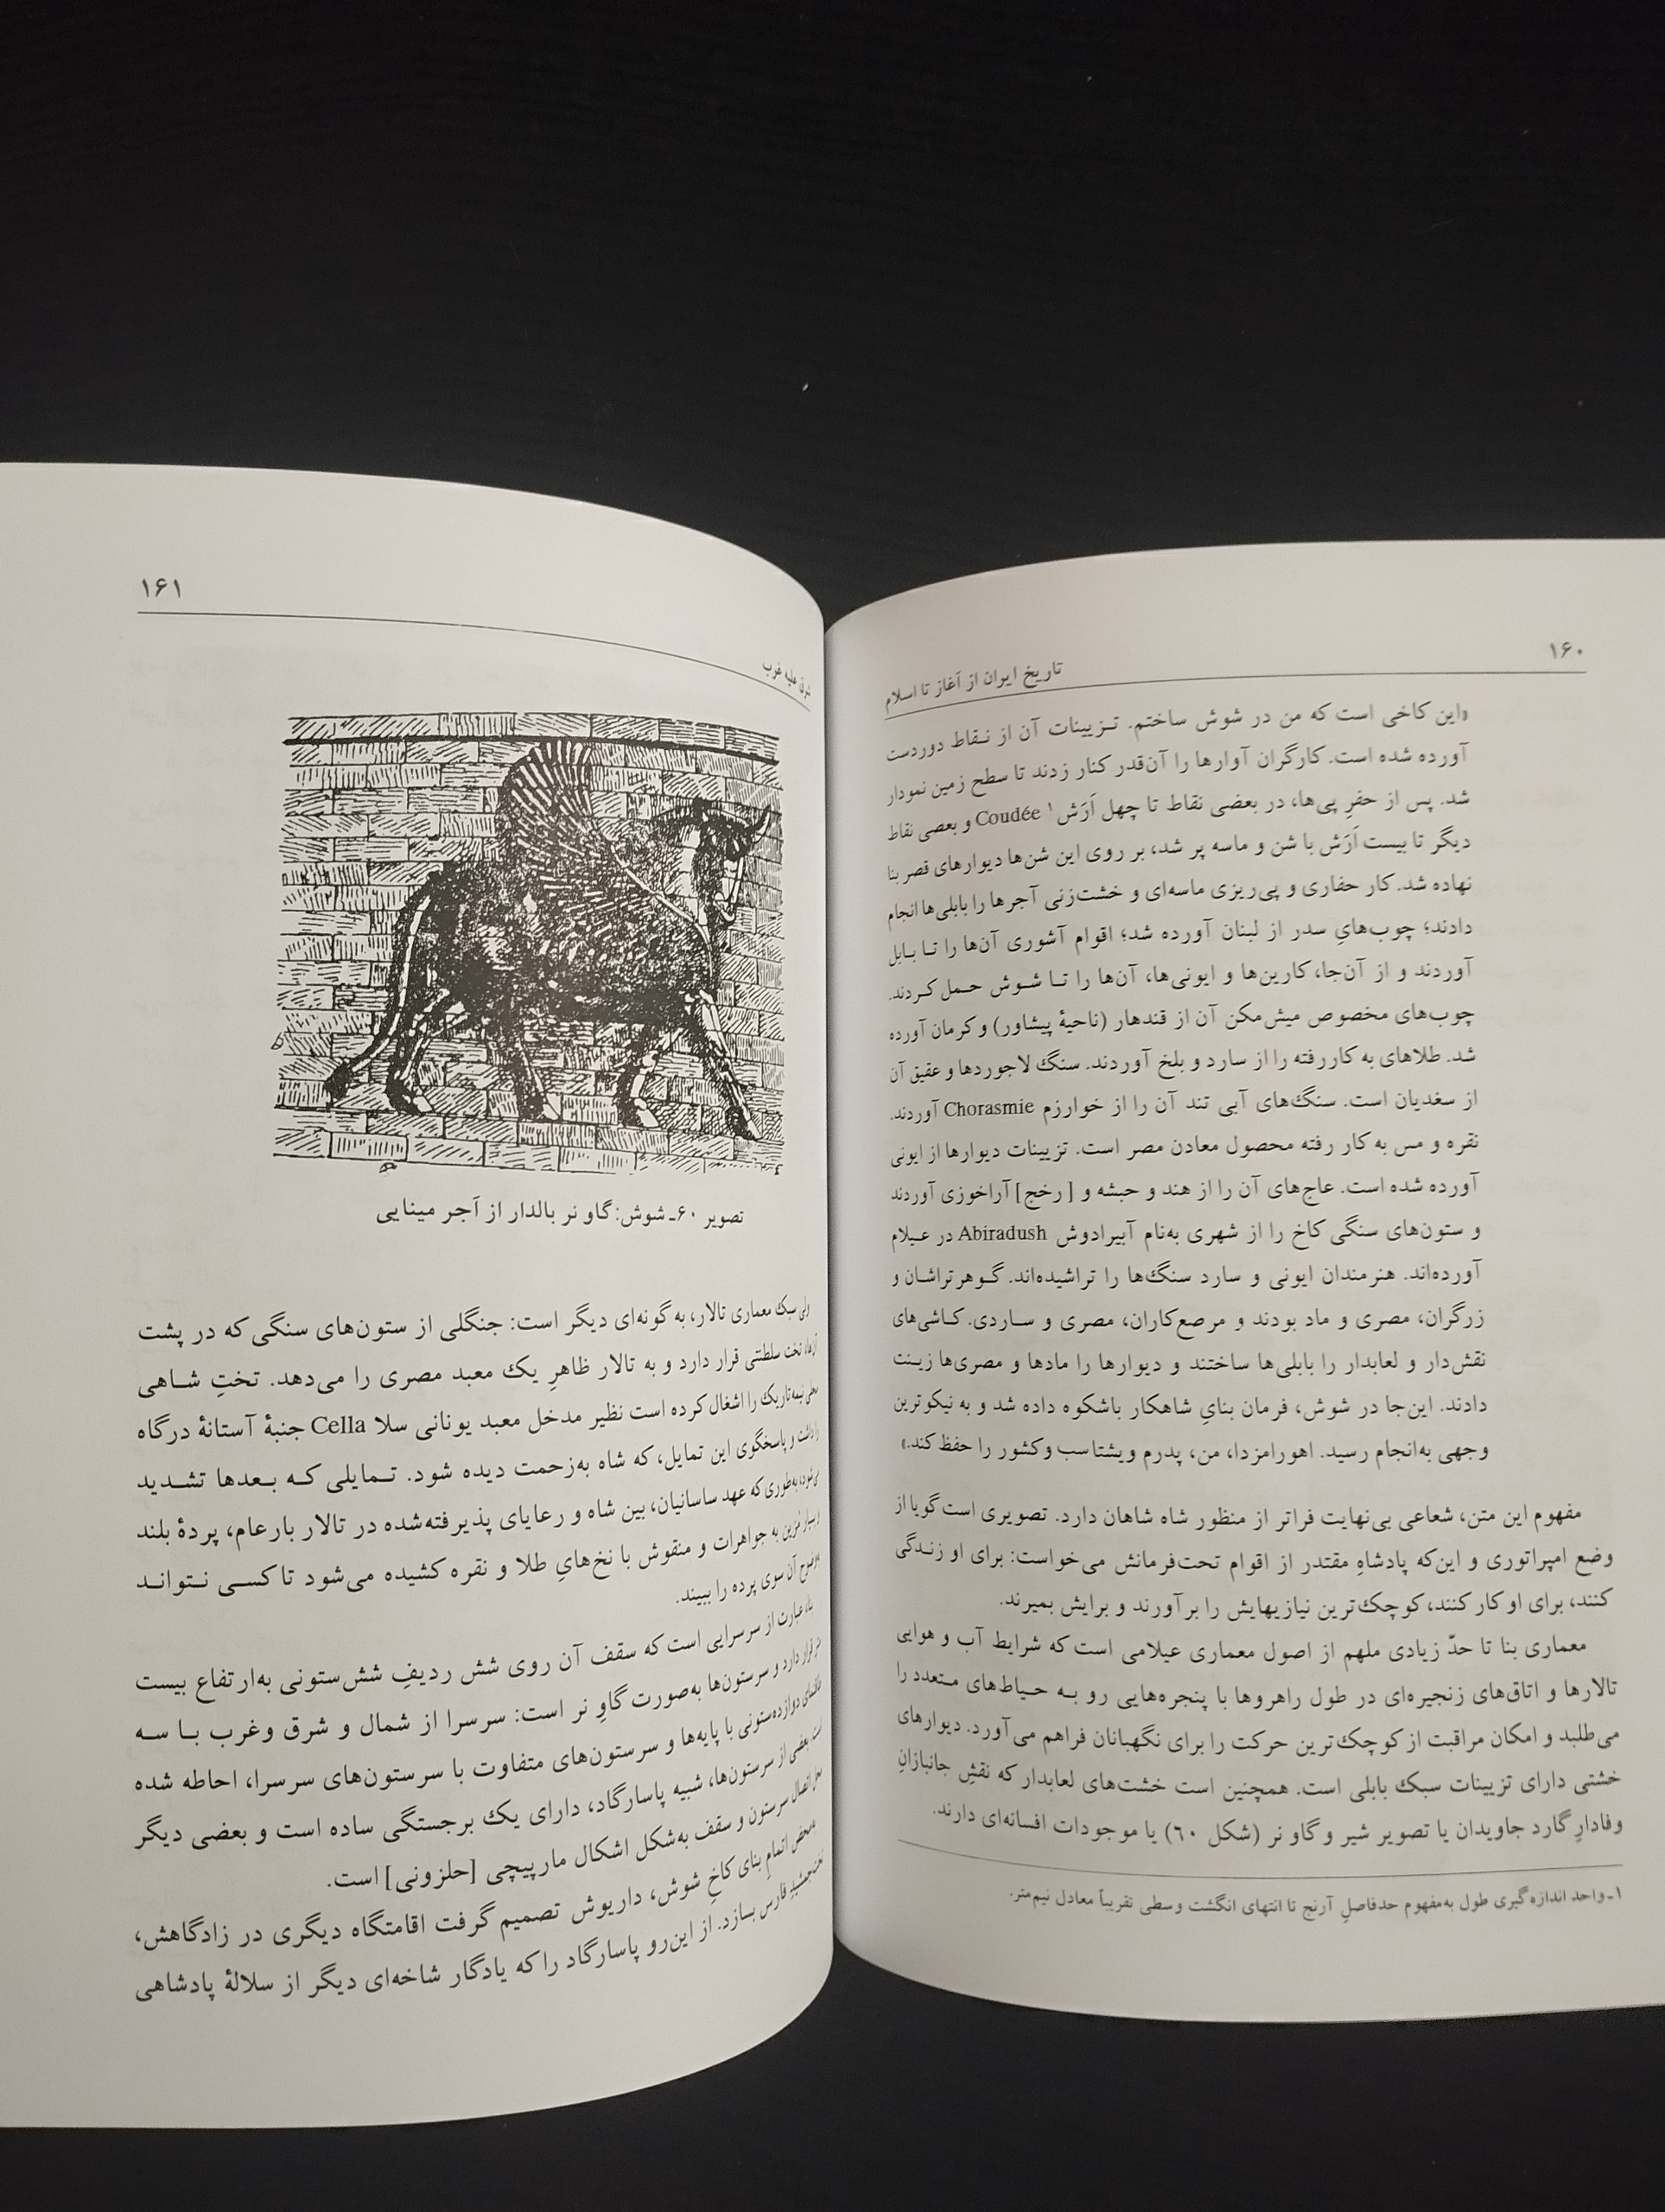 ۱۶۰
تاریخ ایران از آغاز تا اسلام
«این کاخی است که من در شوش ساختم. تزیینات آن از نقاط دوردست
آورده شده است. کارگران آوارها را آن‌قدر کنار زدند تا سطح زمین نمودار
شد. پس از حفرِ پی‌ها، در بعضی نقاط تا چهل اَرَش۱ Coudée و بعصی نقاط
دیگر تا بیست اَرَش با شن و ماسه پر شد، بر روی این شن‌ها دیوارهای قصر بنا
نهاده شد. کار حفاری و پی‌ریزی ماسه‌ای و خشت‌زنی آجرها را بابلی‌ها انجام
دادند؛ چوب‌هایِ سدر از لبنان آورده شد؛ اقوام آشوری آن‌ها را تا بابل
آوردند و از آن‌جا، کارین‌ها و ایونی‌ها، آن‌ها را تا شوش حمل کردند.
چوب‌های مخصوص میش‌مکن آن از قندهار (ناحیهٔ پیشاور) و کرمان آورده
شد. طلاهای به کاررفته را از سارد و بلخ آوردند. سنگ لاجوردها و عقیق آن
از سغدیان است. سنگ‌های آبی تند آن را از خوارزم Chorasmie آوردند.
نقره و مس به کار رفته محصول معادن مصر است. تزیینات دیوارها از ایونی
آورده شده است. عاج‌های آن را از هند و حبشه و [رخج] آراخوزی آوردند
و ستون‌های سنگی کاخ را از شهری به‌نام آبیرادوش Abiradush در عیلام
آورده‌اند. هنرمندان ایونی و سارد سنگ‌ها را تراشیده‌اند. گوهرتراشان و
زرگران، مصری و ماد بودند و مرصع‌کاران، مصری و ساردی. کاشی‌های
نقش‌دار و لعابدار را بابلی‌ها ساختند و دیوارها را مادها و مصری‌ها زینت
دادند. این‌جا در شوش، فرمان بنایِ شاهکار باشکوه داده شد و به نیکوترین
وجهی به‌انجام رسید. اهورامزدا، من، پدرم ویشتاسب وکشور را حفظ کند.»
مفهوم این متن، شعاعی بی‌نهایت فراتر از منظور شاه شاهان دارد. تصویری است گویا از
وضع امپراتوری و این‌که پادشاهِ مقتدر از اقوام تحت‌فرمانش می‌خواست: برای او زندگی
کنند، برای او کار کنند، کوچک‌ترین نیازیهایش را برآورند و برایش بمیرند.
معماری بنا تا حدّ زیادی ملهم از اصول معماری عیلامی است که شرایط آب و هوایی
تالارها و اتاق‌های زنجیره‌ای در طول راهروها با پنجره‌هایی رو به حیاط‌های متعدد را
می‌طلبد و امکان مراقبت از کوچک‌ترین حرکت را برای نگهبانان فراهم می‌آورد. دیوارهای
خشتی دارای تزیینات سبک بابلی است. همچنین است خشت‌های لعابدار که نقشِ جانبازانِ
وفادارِ گارد جاویدان یا تصویر شیر و گاو نر (شکل ٦٠) یا موجودات افسانه‌ای دارند.
۱ـ واحد اندازه‌گیری طول به‌مفهوم حدفاصلِ آرنج تا انتهای انگشت وسطی تقریباً معادل نیم‌متر.
شرق علیه غرب
۱۶۱
تصویر ۶۰ـ شوش: گاو نر بالدار از آجر مینایی
ولی سبک معماری تالار، به گونه‌ای دیگر است: جنگلی از ستون‌های سنگی که در پشت
تخت سلطنتی قرار دارد و به تالار ظاهرِ یک معبد مصری را می‌دهد. تختِ شاهی
نیمه‌تاریک را اشغال کرده است نظیر مدخل معبد یونانی سلا Cella جنبهٔ آستانهٔ درگاه
را داشت و پاسخگوی این تمایل، که شاه به‌زحمت دیده شود. تمایلی که بعدها تشدید
به‌طوری که عهد ساسانیان، بین شاه و رعایای پذیرفته‌شده در تالار بارعام، پردهٔ بلند
به جواهرات و منقوش با نخ‌هایِ طلا و نقره کشیده می‌شود تا کسی نتواند
آن سوی پرده را ببیند.
عبارت از سرسرایی است که سقف آن روی شش ردیفِ شش‌ستونی به‌ارتفاع بیست
قرار دارد و سرستون‌ها به‌صورت گاوِ نر است: سرسرا از شمال و شرق وغرب با سه
دوازده‌ستونی با پایه‌ها و سرستون‌های متفاوت با سرستون‌های سرسرا، احاطه شده
بعضی از سرستون‌ها، شبیه پاسارگاد، دارای یک برجستگی ساده است و بعضی دیگر
اتصال سرستون و سقف به‌شکل اشکال مارپیچی [حلزونی] است.
اتمامِ بنای کاخِ شوش، داریوش تصمیم گرفت اقامتگاه دیگری در زادگاهش،
فارس بسازد. از این‌رو پاسارگاد را که یادگار شاخه‌ای دیگر از سلالهٔ پادشاهی